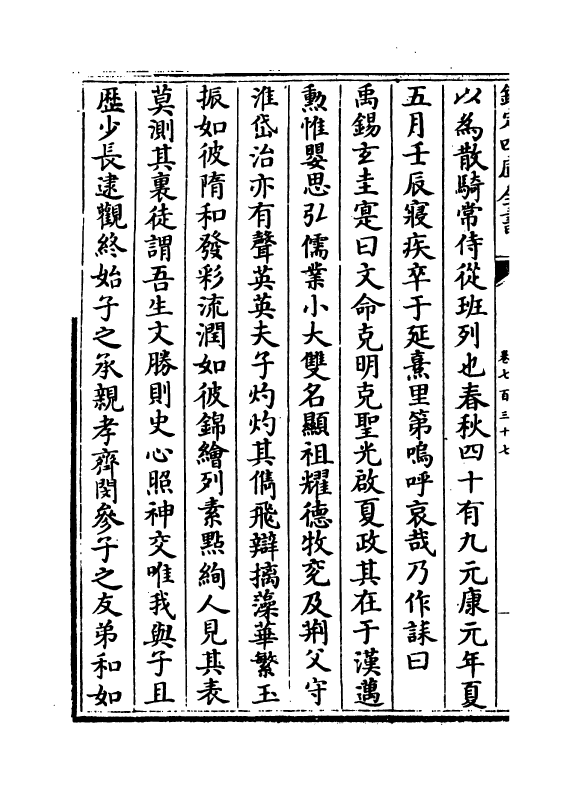 欽定四庫全書
卷七百三十七
以為散騎常侍從班列也春秋四十有九元康元年夏
五月壬辰寢疾卒于延熹里第嗚呼哀哉乃作誄曰
禹錫玄圭寔曰文命克明克聖光啟夏政其在于漢邁
勳惟嬰思弘儒業小大雙名顯祖耀德牧兖及荆父守
淮岱治亦有聲英英夫子灼灼其儁飛辯摛藻華繁玉
振如彼隋和發彩流潤如彼錦繪列素點絢人見其表
莫測其裏徒謂吾生文勝則史心照神交唯我與子且
歴少長逮觀終始子之承親孝齊閔參子之友弟和如